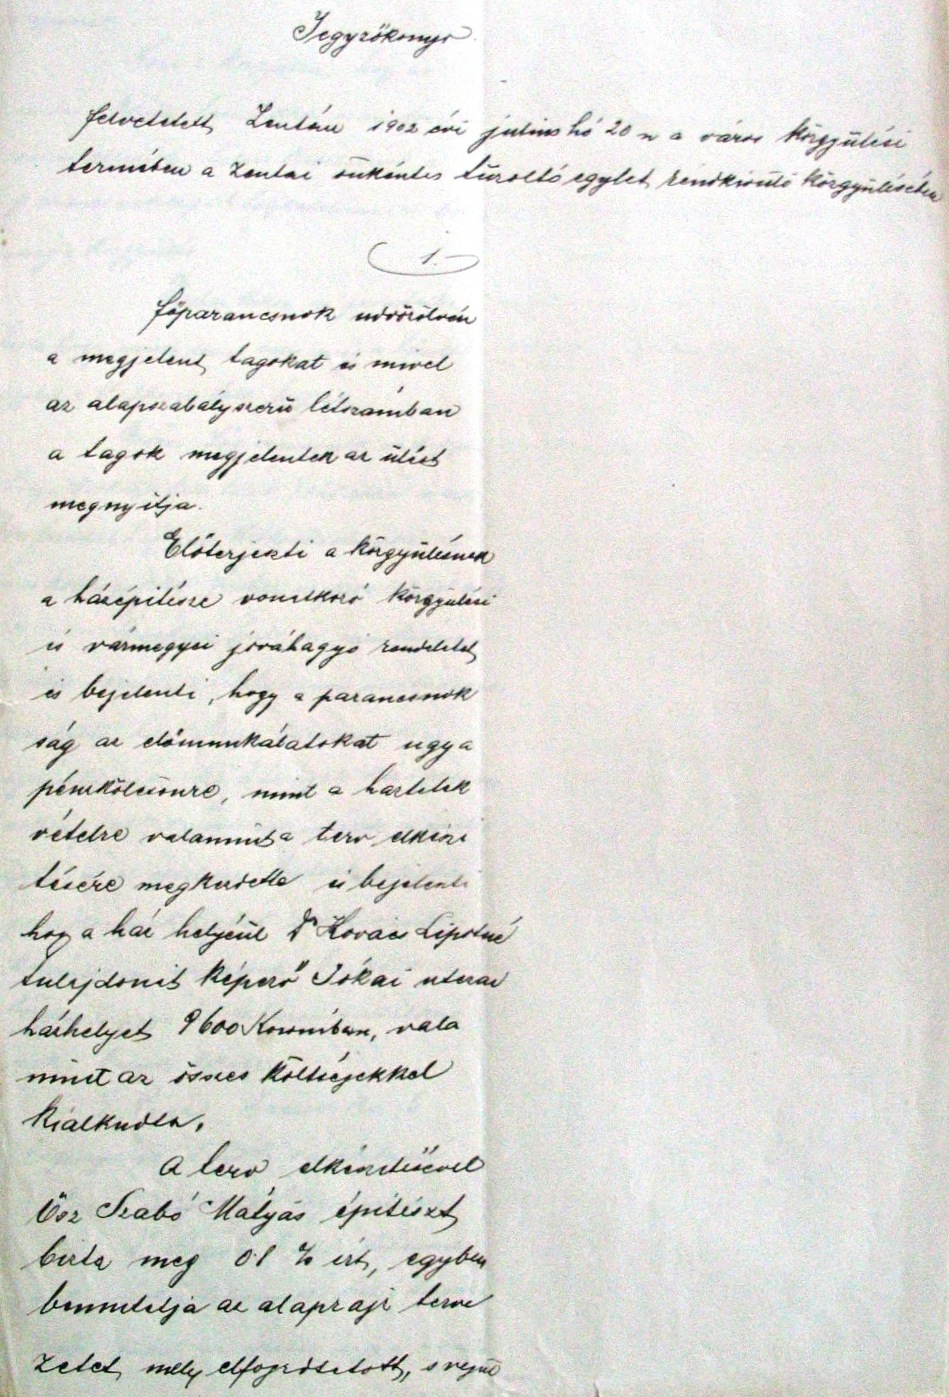 Jegyzőkönyv
felvetetett Zentán 1902 évi julius hó 20 n a város közgyülési
termében a zentai önkéntes tüzoltó egylet rendkivüli közgyülésén
1.
főparancsnok üdvözölvén
a megjelent tagokat és mivel
az alapszabályszerü létszámban
a tagok megjelentek az ülést
megnyitja.
Előterjeszti a közgyülésnek
a házépitésre vonatkozó közgyülési
és vármegyei jóváhagyó rendeletet
és bejelenti, hogy a parancsnok
ság az előmunkálatokat ugy a
pénzkölcsönre, mint a háztelek
vételre valamint a terv elkészi
tésére megkezdette és bejelenti
hogy a ház helyéül Dr Kovács Lipótné
tulajdonát képező Jókai utczai
házhelyet 9600 Koronában, vala
mint az összes költségekkel
kialkudta.
A terv elkészitésével
Ősz Szabó Mátyás épitészt
bizta meg 0.1 % ért, egyben
bemutatja az alaprajzi terve
zetet mely elfogadtatott, s